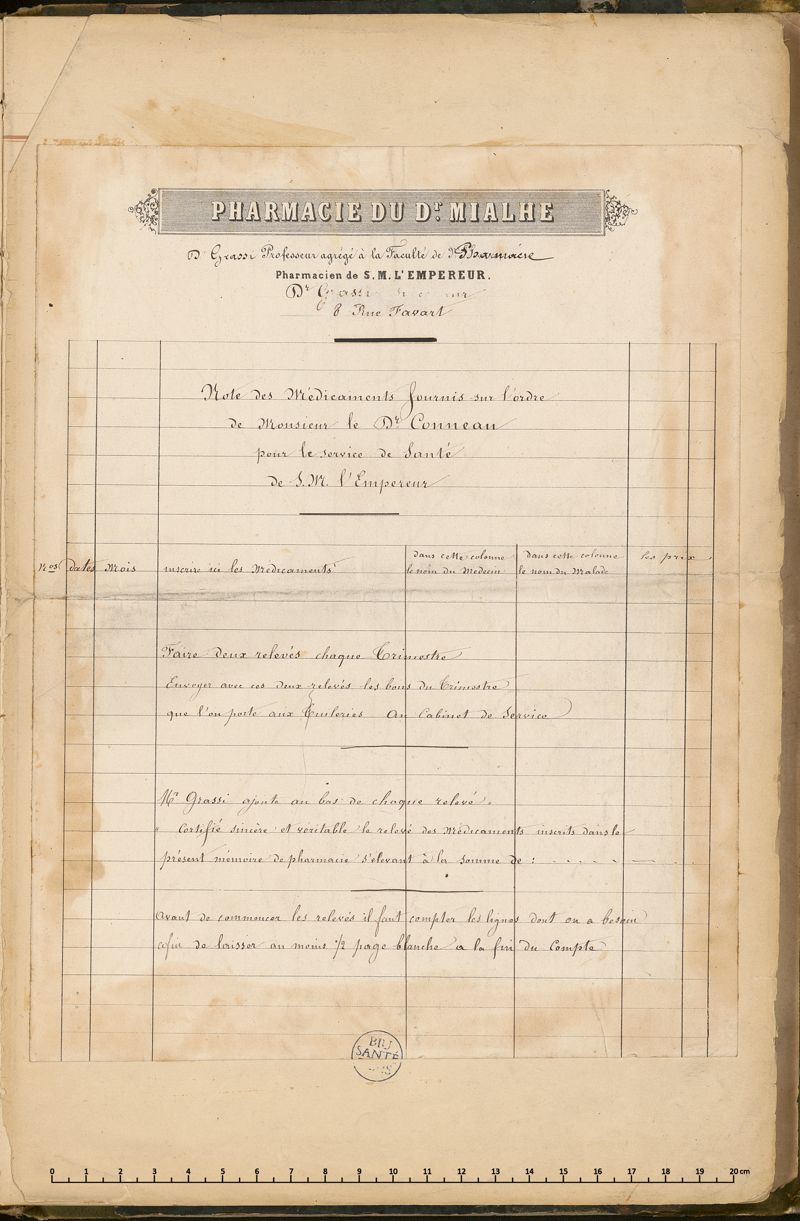 PHARMACIE DU Dr. MIALHE
Dr Grassi Professeur agrégé à la Faculté de Pharmacie
Pharmacien de S. M. L'EMPEREUR.
Dr Grassi
8 Rue Favart
Note des Médicaments fournis sur l'ordre
de Monsieur le Dr Conneau
pour le service de Santé
de S. M. l'Empereur
Nos dates Mois inscrire ici les Médicaments dans cette colonne le nom du Médecin dans cette colonne le nom du Malade les prix
Faire deux relevés chaque Trimestre
Envoyer avec ces deux relevés les bons du Trimestre
que l'on porte aux Tuileries au Cabinet de Service
Mr Grassi ajoute au bas de chaque relevé.
" Certifié sincère et véritable le relevé des Médicaments inscrits dans le
présent mémoire de pharmacie s'élevant à la somme de :
Avant de commencer les relevés il faut compter les lignes dont on a besoin
afin de laisser au moins 1/2 page blanche à la fin du Compte
BIU
SANTÉ
0 1 2 3 4 5 6 7 8 9 10 11 12 13 14 15 16 17 18 19 20 cm